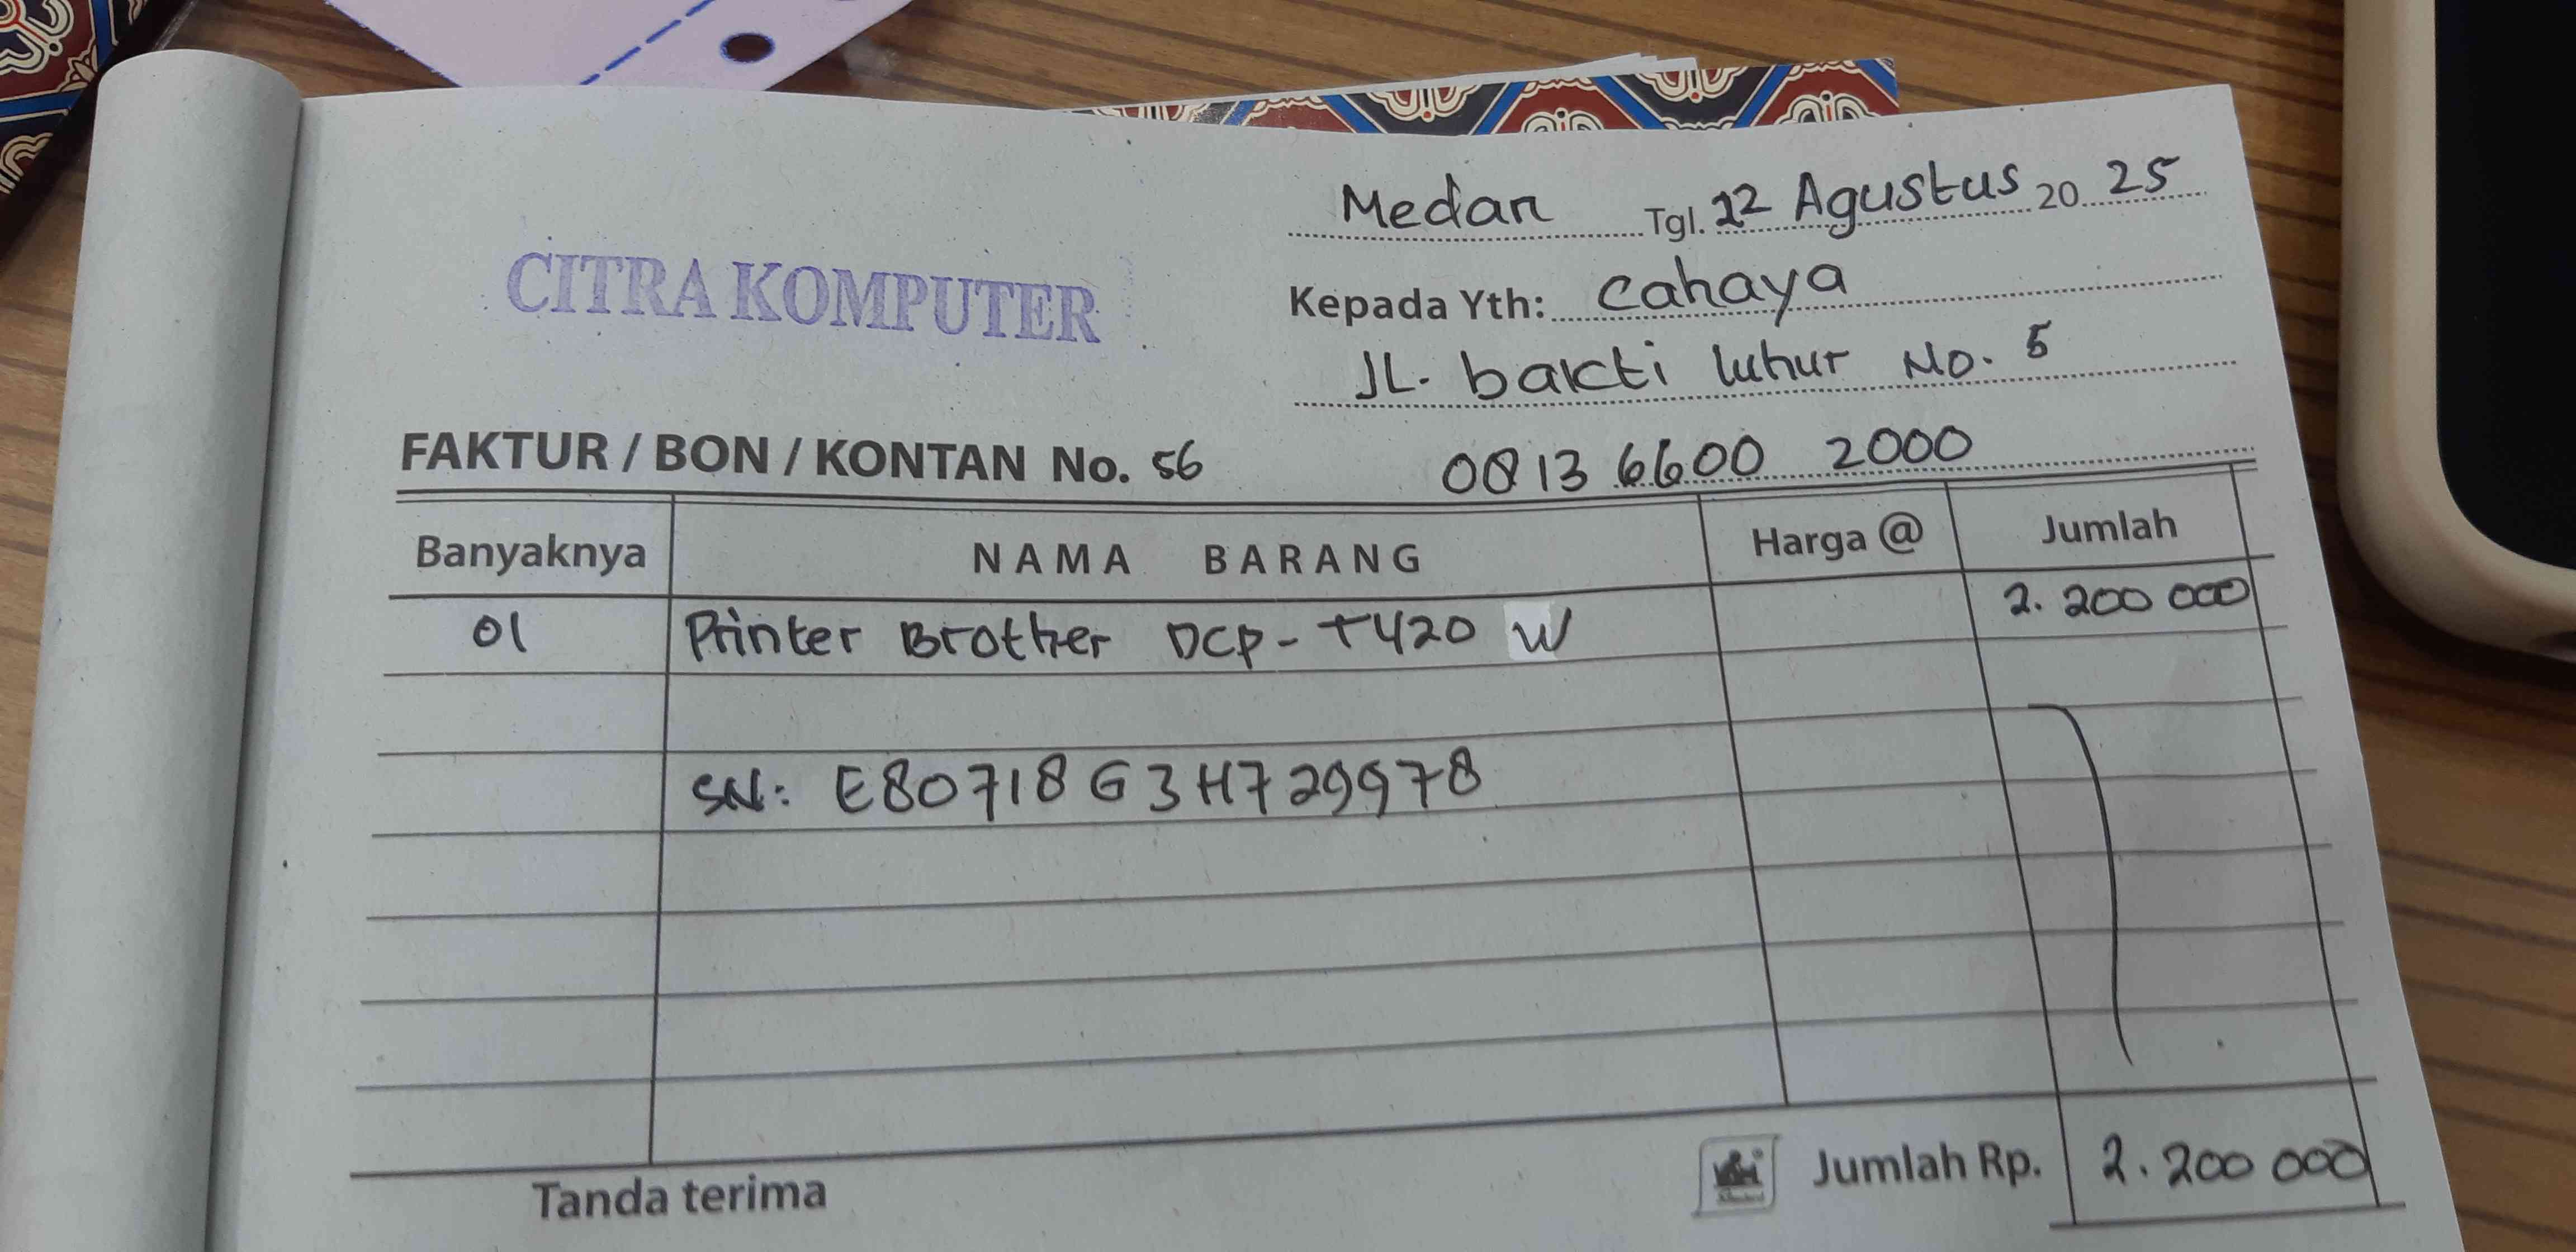 Medan Tgl. 22 Agustus 20 25
CITRA KOMPUTER
Kepada Yth: Cahaya
JL. bakti luhur No. 5
FAKTUR / BON / KONTAN No. 56
0813 6600 2000
Banyaknya NAMA BARANG Harga @ Jumlah
01 Printer Brother DCP-T420 W 2.200 000
SN: E80718G3H729978
Tanda terima
Jumlah Rp. 2.200 000